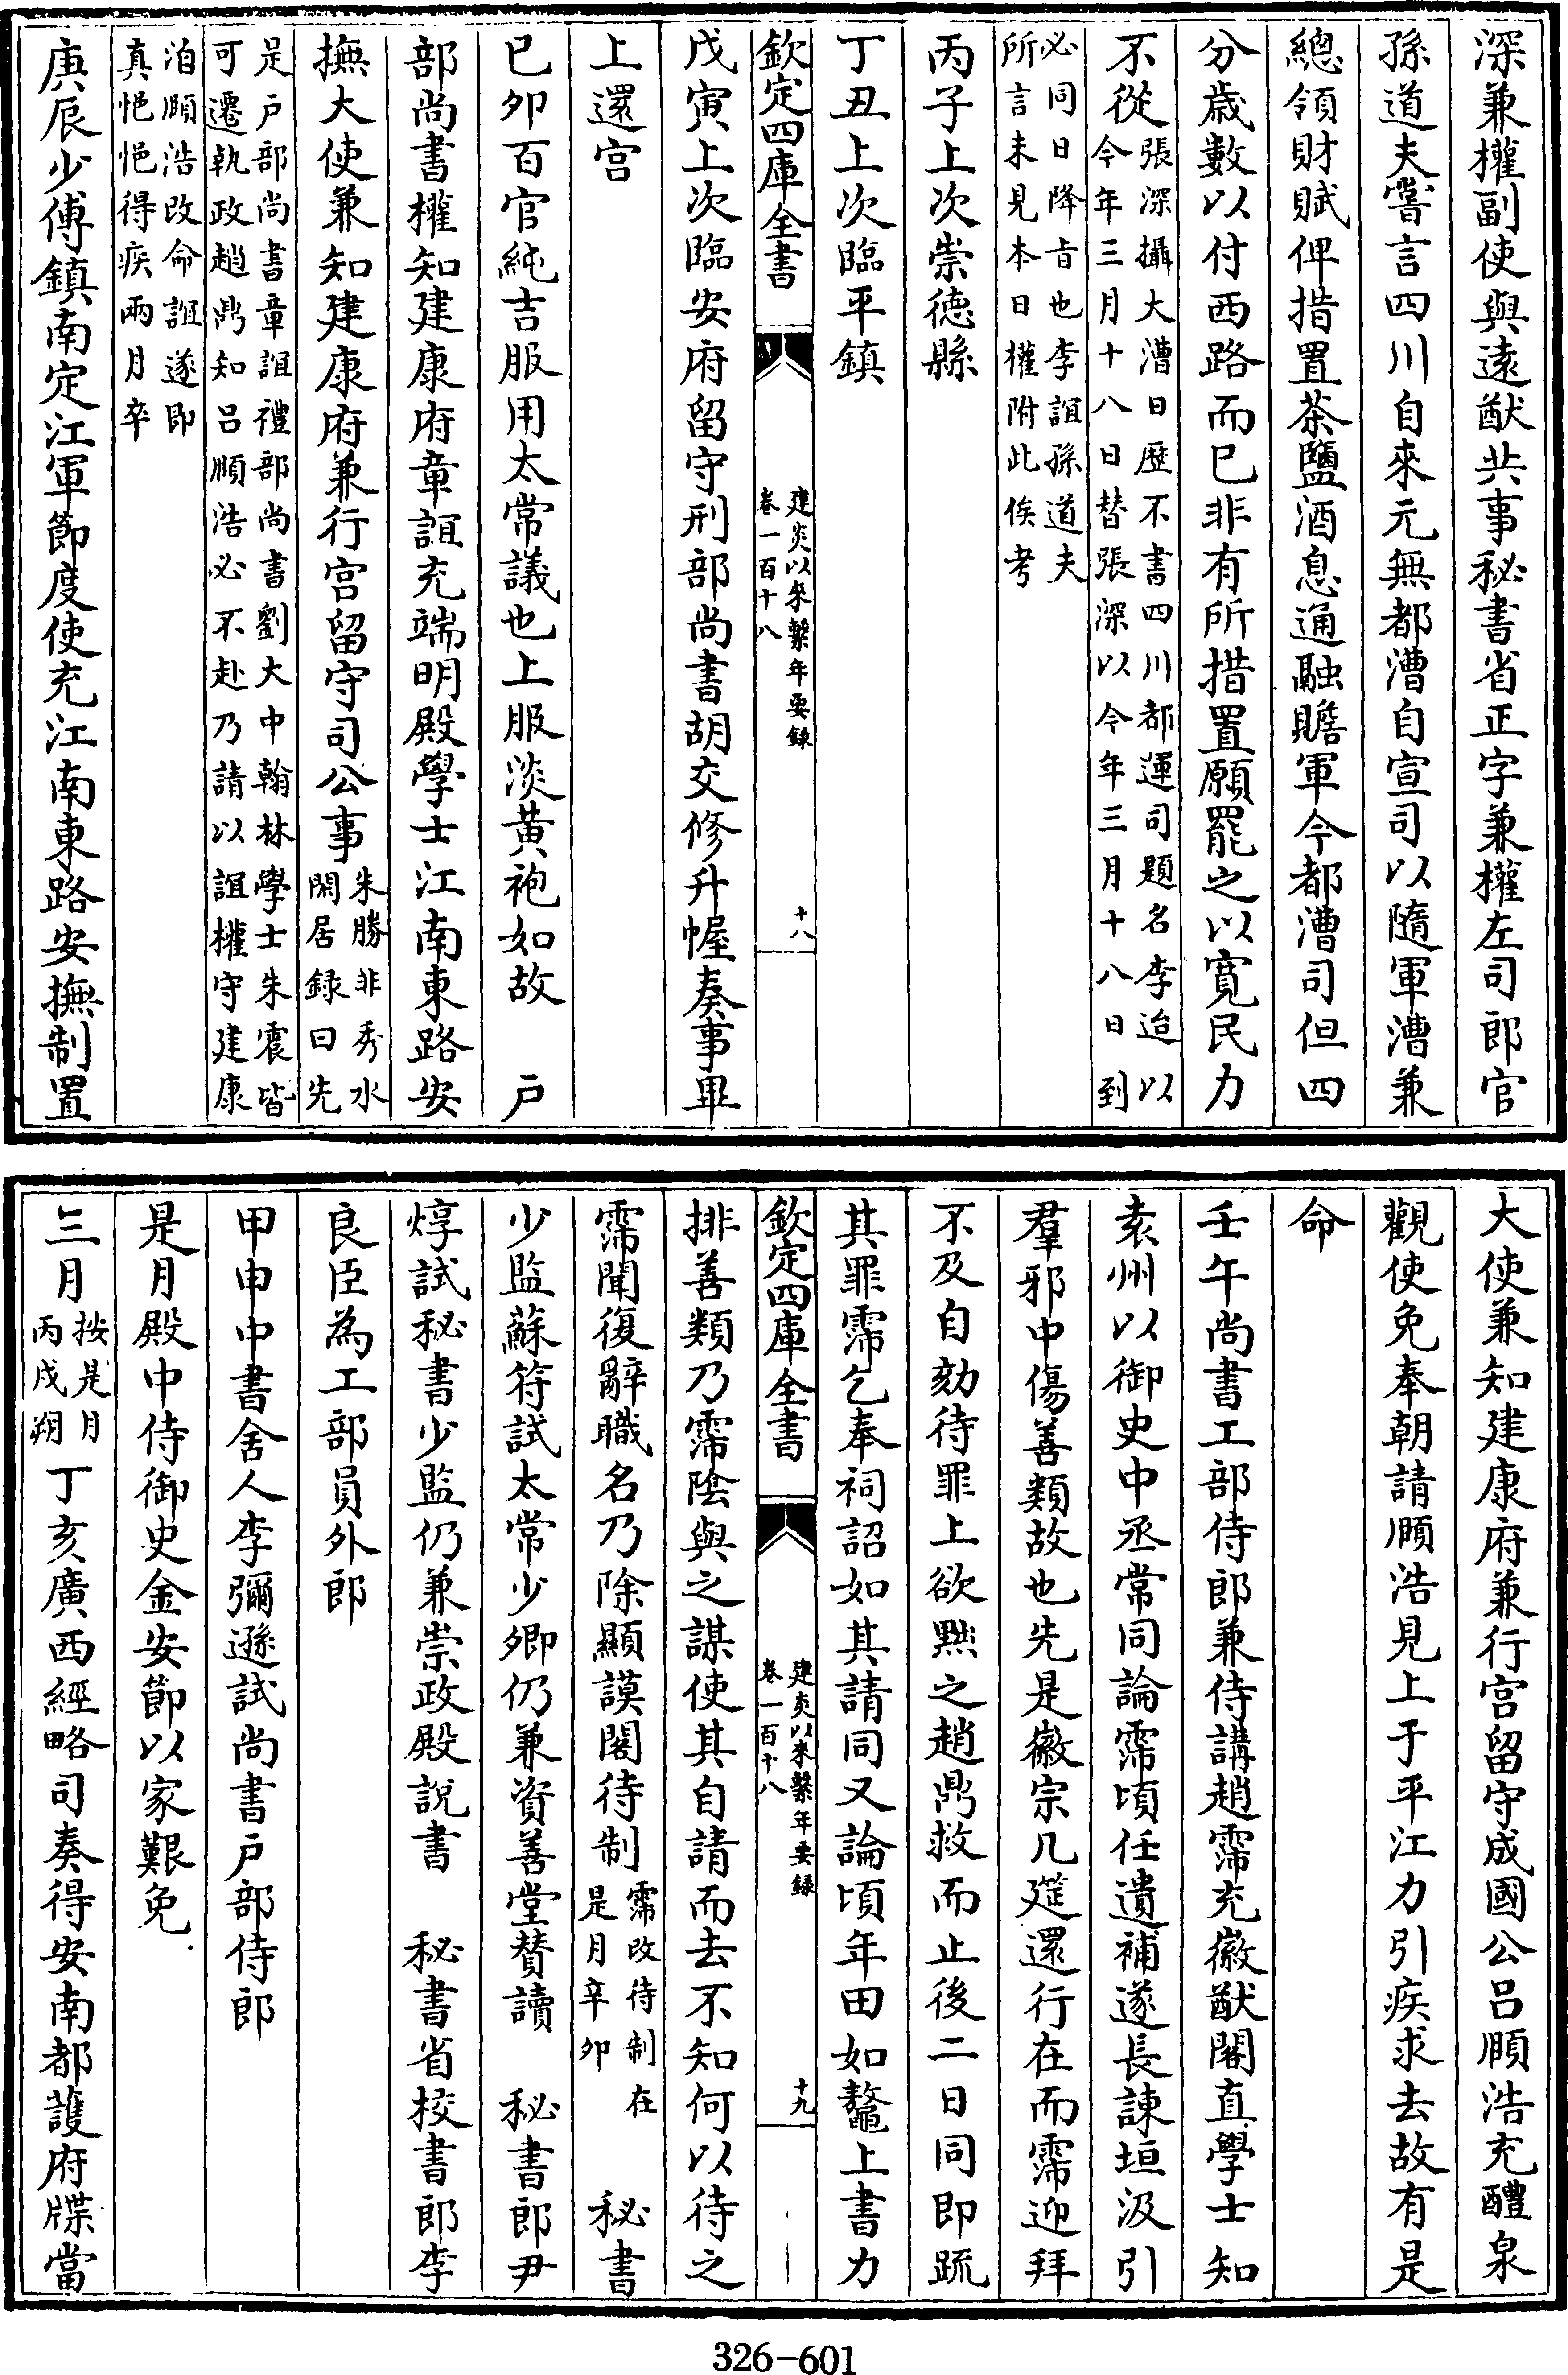 深兼權副使與遠猷共事秘書省正字兼權左司郎官
孫道夫嘗言四川自來元無都漕自宣司以隨軍漕兼
總領財賦俾措置茶鹽酒息通融贍軍今都漕司但四
分歲數以付西路而已非有所措置願罷之以寛民力
不從張深攝大漕日歴不書四川都運司題名李迨以
今年三月十八日替張深以今年三月十八日到
必同日降㫖也李誼孫道夫
所言未見本日權附此俟考
丙子上次崇徳縣
丁丑上次臨平鎮
欽定四庫全書
建炎以來繫年要録
卷一百十八
十八
戊寅上次臨安府留守刑部尚書胡交修升幄奏事畢
上還宫
已夘百官純吉服用太常議也上服淡黄袍如故 户
部尚書權知建康府章誼充端明殿學士江南東路安
撫大使兼知建康府兼行宫留守司公事朱勝非秀水
閑居録曰先
是户部尚書章誼禮部尚書劉大中翰林學士朱震皆
可遷執政趙鼎知吕頤浩必不赴乃請以誼權守建康
洎頤浩改命誼遂即
真悒悒得疾兩月卒
庚辰少傅鎮南定江軍節度使充江南東路安撫制置
大使兼知建康府兼行宫留守成國公吕頤浩充醴泉
觀使免奉朝請頤浩見上于平江力引疾求去故有是
命
壬午尚書工部侍郎兼侍講趙霈充徽猷閣直學士知
袁州以御史中丞常同論霈頃任遺補遂長諫垣汲引
羣邪中傷善類故也先是徽宗几筵還行在而霈迎拜
不及自劾待罪上欲黜之趙鼎救而止後二日同即䟽
其罪霈乞奉祠詔如其請同又論頃年田如鼇上書力
欽定四庫全書
建炎以來繫年要録
卷一百十八
十九
排善類乃霈陰與之謀使其自請而去不知何以待之
霈聞復辭職名乃除顯謨閣待制霈改待制在
是月辛夘 秘書
少監蘇符試太常少卿仍兼資善堂贊讀 秘書郎尹
焞試秘書少監仍兼崇政殿説書 秘書省校書郎李
良臣為工部員外郎
甲申中書舍人李彌遜試尚書户部侍郎
是月殿中侍御史金安節以家艱免
三月按是月
丙戌朔丁亥廣西經略司奏得安南都䕶府牒當
326-601